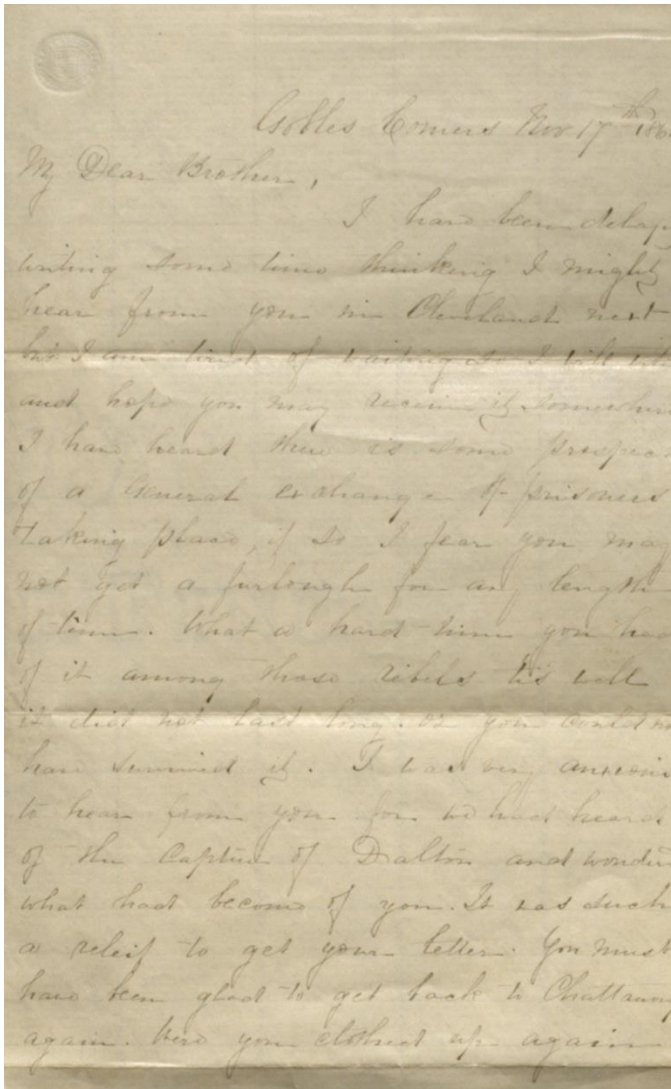 Gobles Corners Nov 17th 186
My Dear Brother,
I have been delay
writing some time thinking I might
hear from you in Cleveland next
but I am tired of waiting so I will
and hope you may receive it somewher
I have heard there is some prospec
of a General exchange of prisoners
taking place, if so I fear you may
not get a furlough for any length
of time. What a hard time you had
of it among those rebels tis well
it did not last long. or you could
have survived it. I was very
to hear from you for we had heard
of the Capture of Dalton and
what had become of you. It was such
a releif to get your letter. You must
have been glad to get back to Chattanoog
again. Were you clothed up again